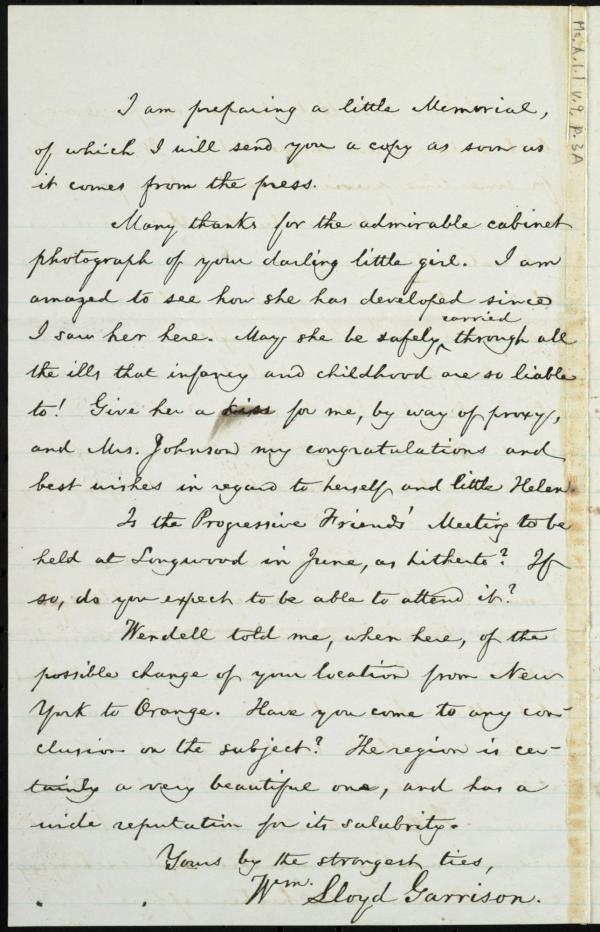 I am preparing a little Memorial,
of which I will send you a copy as soon as
it comes from the press.
Many thanks for the admirable cabinet
photograph of your darling little girl. I am
amazed to see how she has developed since
I saw her here. May she be safely carried through all
the ills that infancy and childhood are so liable
to! Give her a kiss for me, by way of proxy,
and Mrs. Johnson my congratulations and
best wishes in regard to herself and little Helen.
Is the Progressive Friends' Meeting to be
held at Longwood in June, as hitherto? If
so, do you expect to be able to attend it?
Wendell told me, when here, of the
possible change of your location from New
York to Orange. Have you come to any con-
clusion on the subject? The region is cer-
tainly a very beautiful one, and has a
wide reputation for its salubrity.
Yours by the strongest ties,
Wm. Lloyd Garrison.
Ms.A.1.1 v.9, p.3A